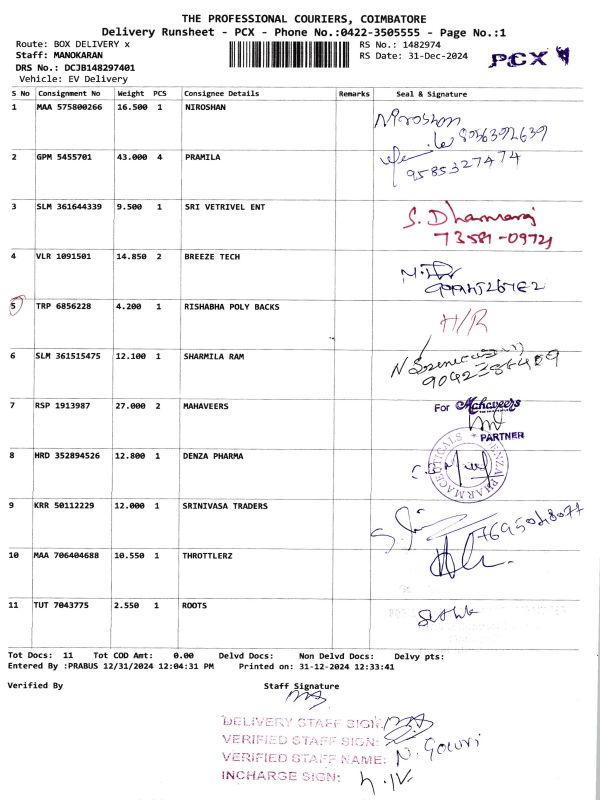 THE PROFESSIONAL COURIERS, COIMBATORE
Delivery Runsheet - PCX - Phone No.:0422-3505555 - Page No.:1
Route: BOX DELIVERY x RS No.: 1482974
Staff: MANOKARAN RS Date: 31-Dec-2024 PCX
DRS No.: DCJB148297401
Vehicle: EV Delivery
S No Consignment No Weight PCS Consignee Details Remarks Seal & Signature
1 MAA 575800266 16.500 1 NIROSHAN Niroshan
8056392639
2 GPM 5455701 43.000 4 PRAMILA
9585327474
3 SLM 361644339 9.500 1 SRI VETRIVEL ENT S. Dhanraj
73581-09721
4 VLR 1091501 14.850 2 BREEZE TECH
5 TRP 6856228 4.200 1 RISHABHA POLY BACKS H/R
6 SLM 361515475 12.100 1 SHARMILA RAM
7 RSP 1913987 27.000 2 MAHAVEERS For Mahaveers
PARTNER
8 HRD 352894526 12.800 1 DENZA PHARMA DENZA PHARMACEUTICALS
9 KRR 50112229 12.000 1 SRINIVASA TRADERS 7695048077
10 MAA 706404688 10.550 1 THROTTLERZ
11 TUT 7043775 2.550 1 ROOTS
Tot Docs: 11 Tot COD Amt: 0.00 Delvd Docs: Non Delvd Docs: Delvy pts:
Entered By :PRABUS 12/31/2024 12:04:31 PM Printed on: 31-12-2024 12:33:41
Verified By Staff Signature
DELIVERY STAFF SIGN:
VERIFIED STAFF SIGN:
VERIFIED STAFF NAME: N. Gowri
INCHARGE SIGN: